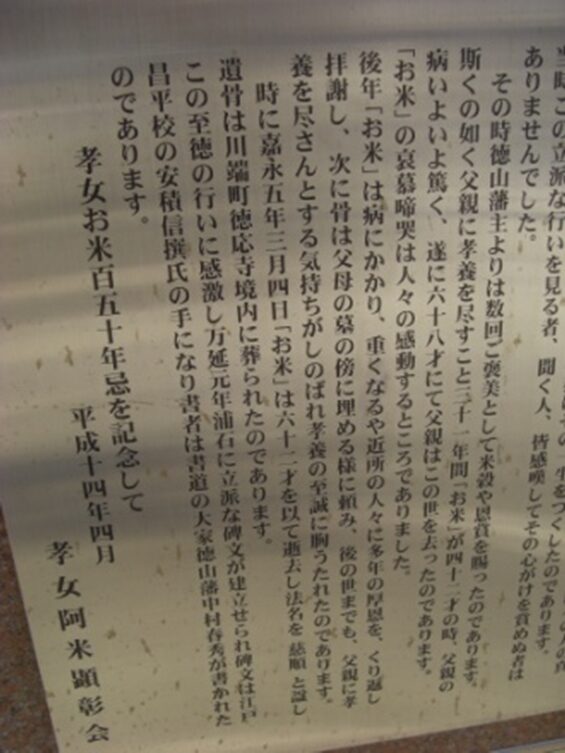 当時この立派な行いを見る者、聞く人、皆感嘆してその心がけを賞めぬ者は
ありませんでした。
その時徳山藩主よりは数回ご褒美として米穀や恩賞を賜ったのであります。
斯くの如く父親に孝養を尽すこと三十一年間「お米」が四十二才の時、父親の
病いよいよ篤く、遂に六十八才にて父親はこの世を去ったのであります。
「お米」の哀慕啼哭は人々の感動するところでありました。
後年「お米」は病にかかり、重くなるや近所の人々に多年の厚恩を、くり返し
拝謝し、次に骨は父母の墓の傍に埋める様に頼み、後の世までも、父親に孝
養を尽さんとする気持ちがしのばれ孝養の至誠に胸うたれたのであります。
時に嘉永五年三月四日「お米」は六十二才を以て逝去し法名を慈順と諡し
遺骨は川端町徳応寺境内に葬られたのであります。
この至徳の行いに感激し万延元年浦石に立派な碑文が建立せられ碑文は江戸
昌平校の安積信撰氏の手になり書者は書道の大家徳山藩中村春秀が書かれた
のであります。
孝女お米百五十年忌を記念して
平成十四年四月
孝女阿米顕彰会